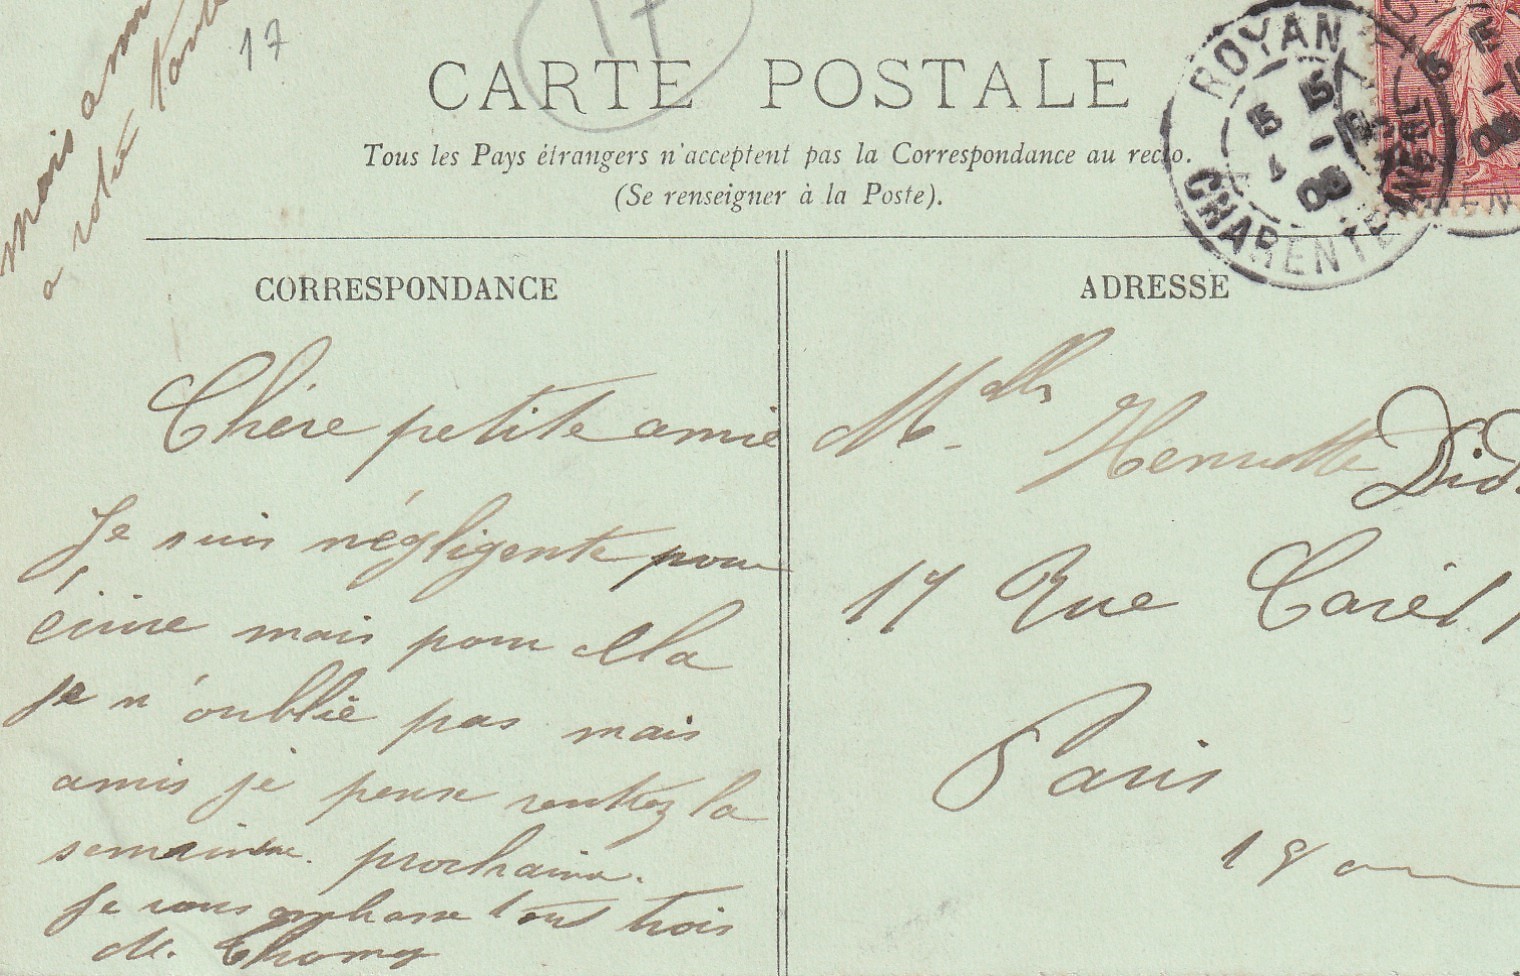 mais ami
a votre tante
17
17
CARTE POSTALE
Tous les Pays étrangers n'acceptent pas la Correspondance au recto.
(Se renseigner à la Poste).
ROYAN
15 15
4 -10
08
CHARENTE-INFRE
CORRESPONDANCE
Chère petite amie
Je suis négligente pour
écrire mais pour cella
je n'oublie pas mais
amis je pense rentrez la
semaine prochaine.
Je vous embrasse tous trois
M. Thomy
ADRESSE
Melle Henriette Did
17 Rue Carel
Paris
19